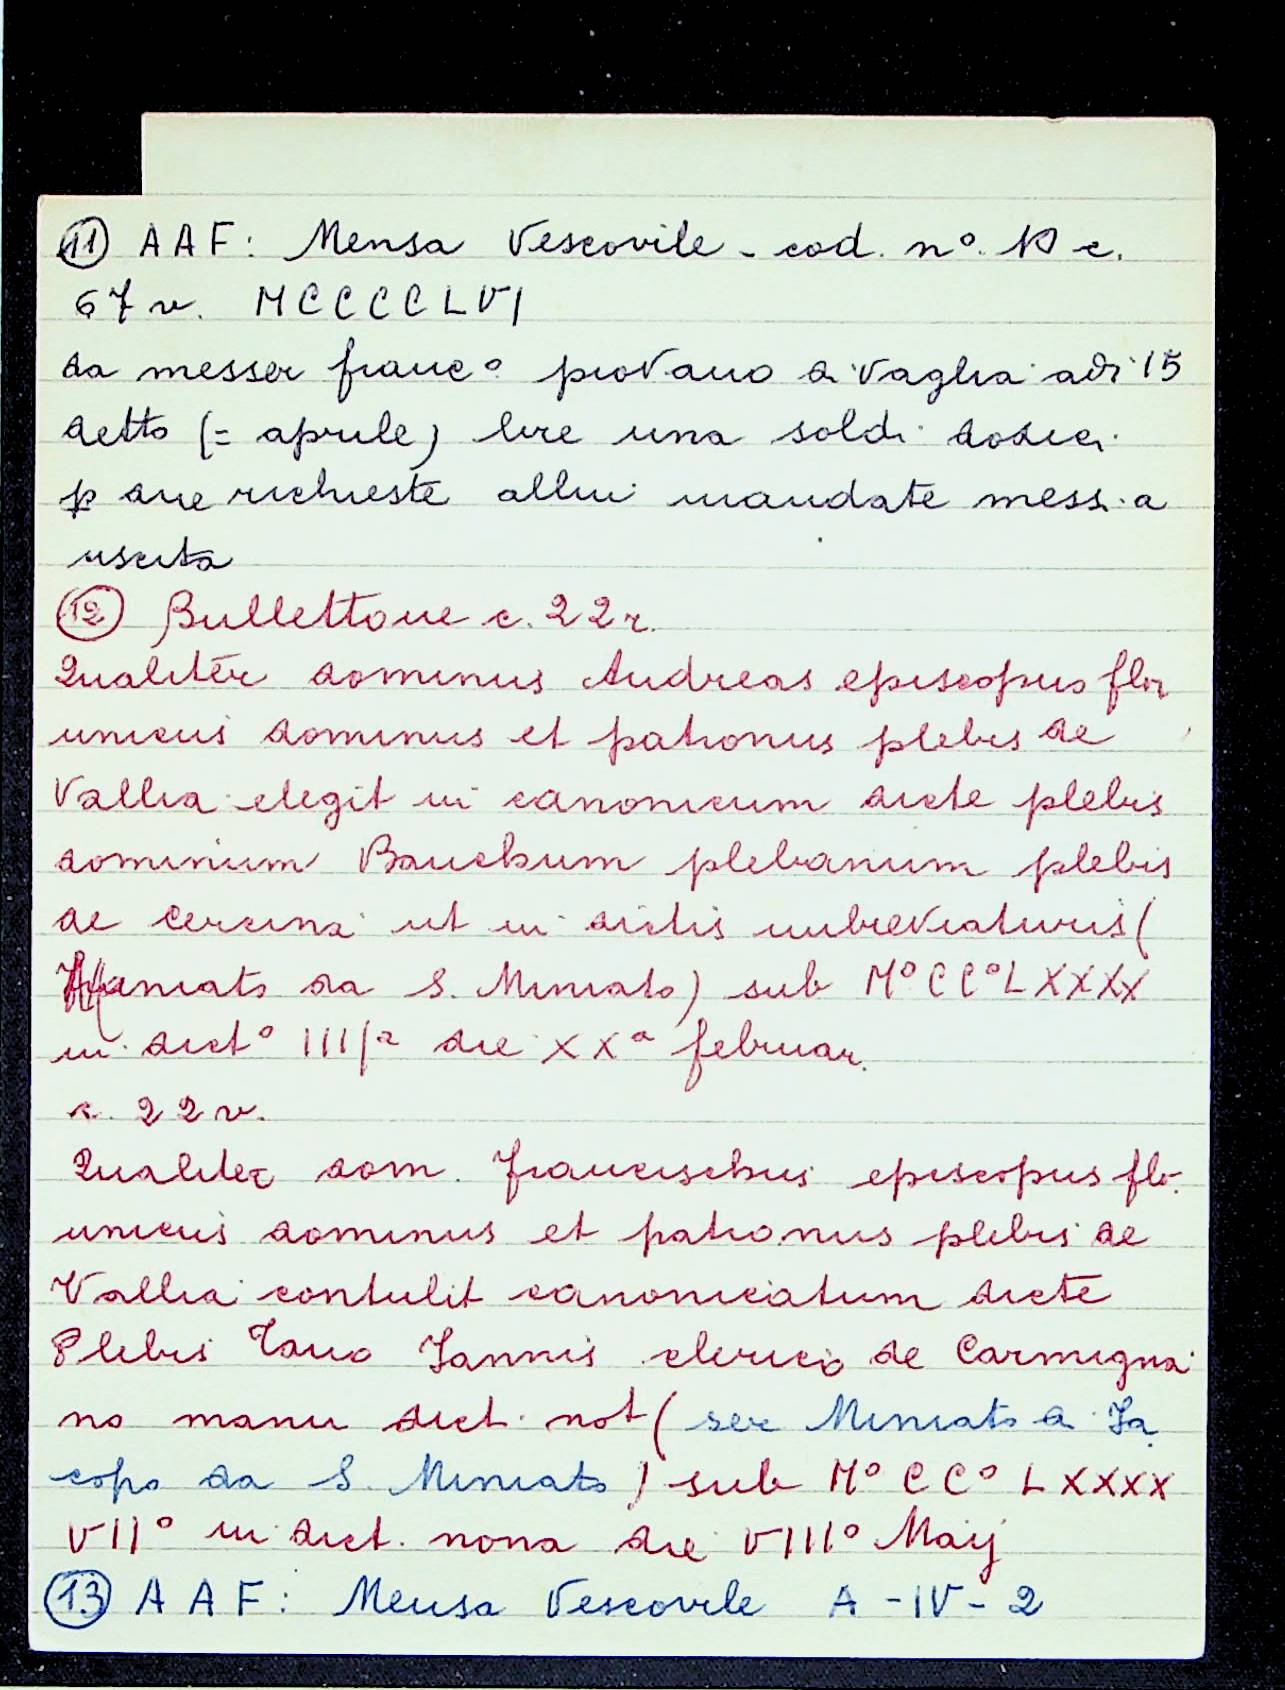 (11) AAF: Mensa Vescovile - cod. n°. c.
67 v. MCCCCLVI
da messer franc° piovano di Vaglia adi 15
detto (= aprile) lire una soldi dodici
p due richieste allui mandate mess. a
uscita
(12) Bullettone c. 22 r.
Qualiter dominus Andreas episcopus flor
unicus dominus et patronus plebis de
Vallia elegit in canonicum dicte plebis
dominum plebanum plebis
de Cercina ut in dictis imbreviaturis (
da S. Miniato) sub M° CC° LXXXX
in dict° III die XXª februar.
c. 22 v.
Qualiter dom. Francischus episcopus flo.
unicus dominus et patronus plebis de
Vallia contulit canonicatum dicte
Plebis Iannis clerico de Carmigna
no manu dict. not (ser Miniato di Ja
copo da S. Miniato) sub M° CC° LXXXX
VII° in dict. nona die VIII° Maij
(13) AAF: Mensa Vescovile A - IV - 2